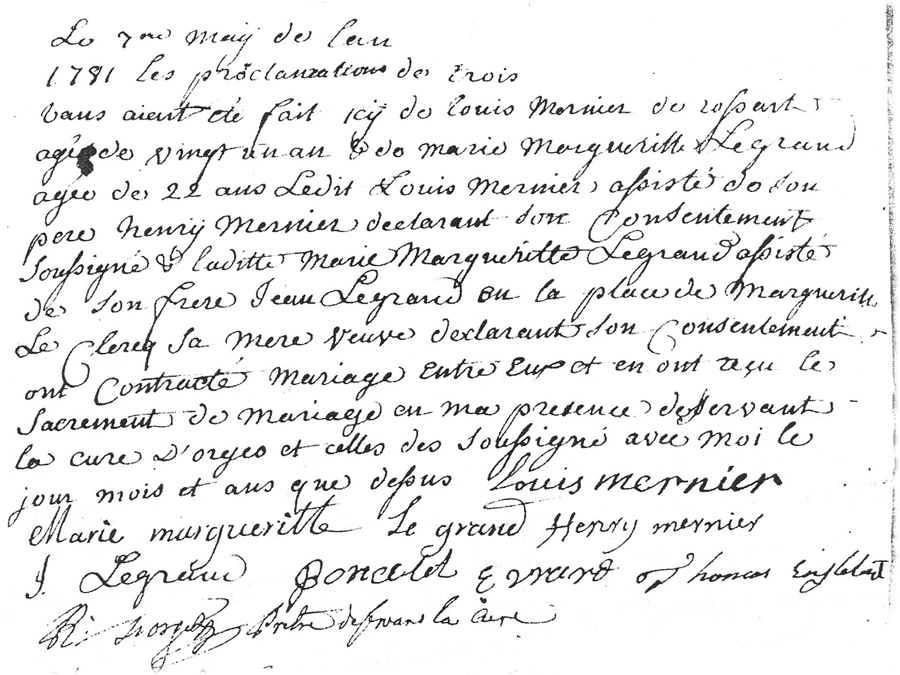 Le 7me maij de lan
1781 les proclamations de trois
bans aiant été fait icij de louis Mernier de rossart
agée de vingt un an & de marie Margueritte Legrand
agée de 22 ans Ledit Louis Mernier assisté de son
pere henrij Mernier declarant son Consentement
soussigné & laditte Marie Margueritte Legrand assisté
de son frere Jean Legrand en la place de Margueritte
Le Clercq sa mere veuve declarant son Consentement
ont Contracté Mariage Entre Eux et en ont reçu le
Sacrement de Mariage en ma presence deservant
la cure D'orgeo et celles des soussigné avec Moi le
jour mois et ans que dessus Louis mernier
Marie margueritte le grand Henry mernier
J. Legrand Poncelet Evrard Thomas Englebert
Prêtre desservant la Cure